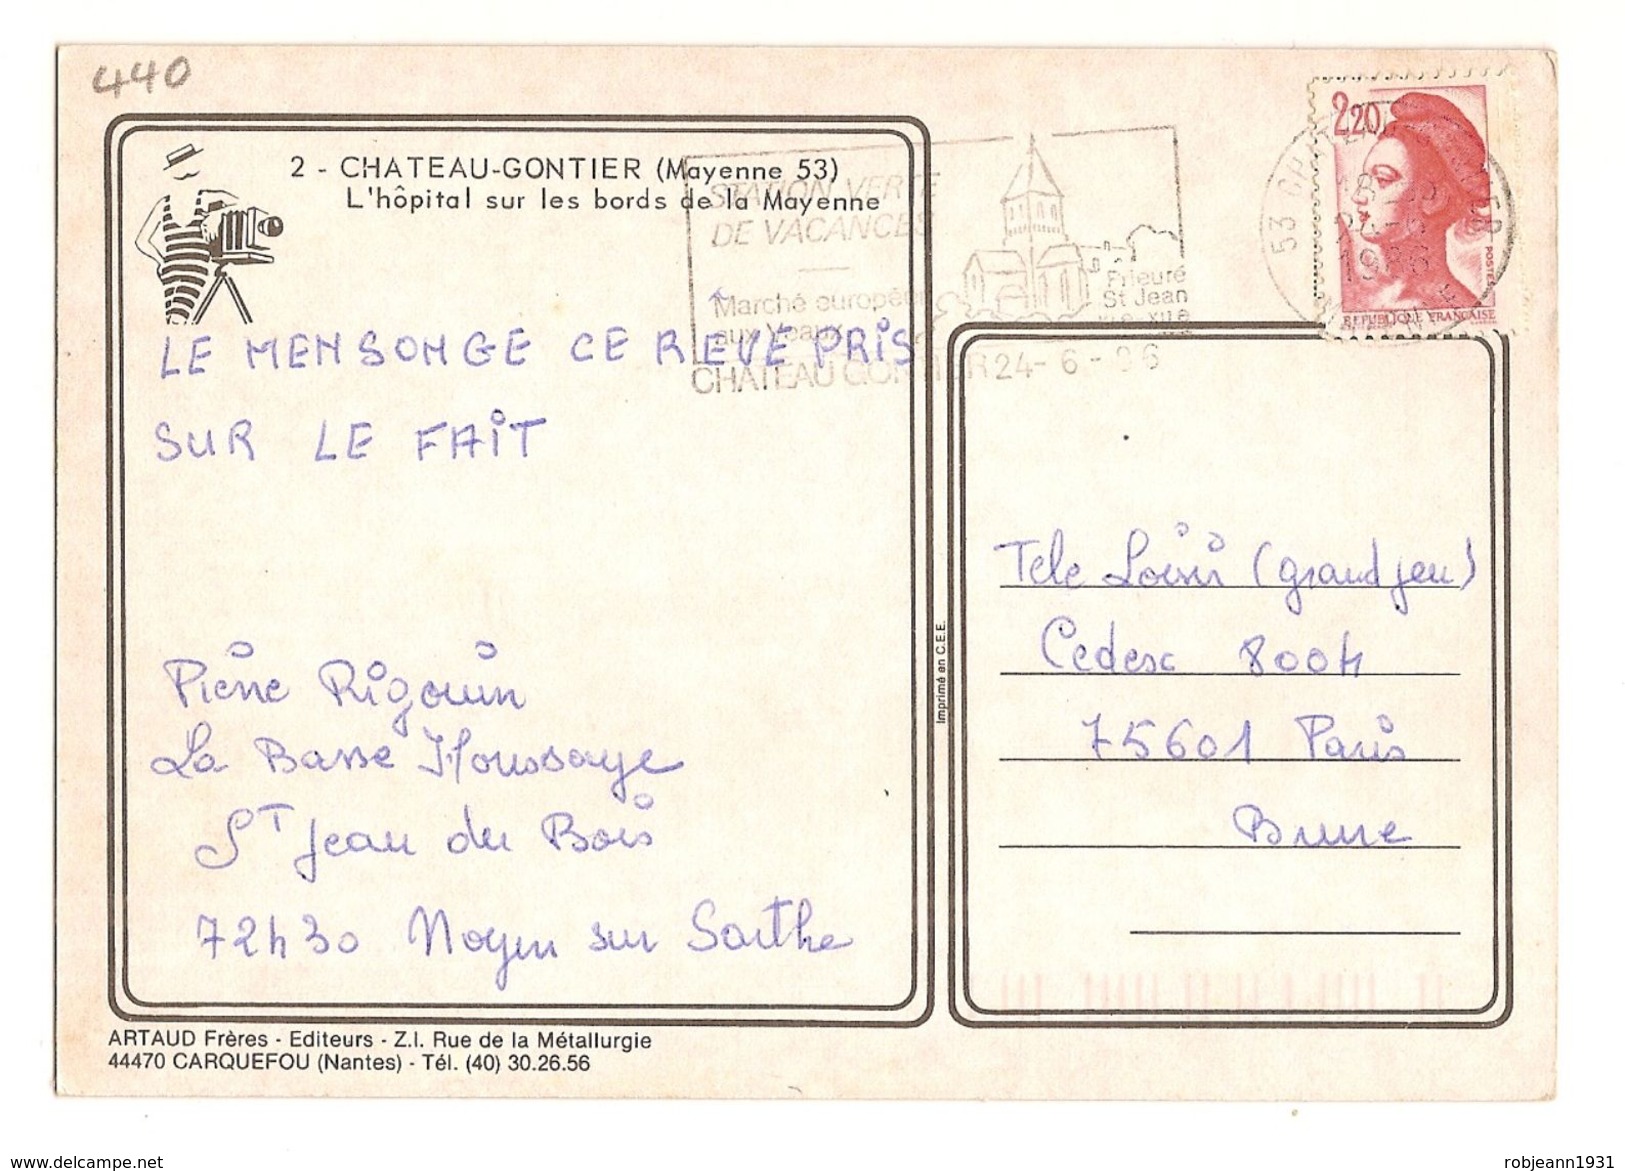 440
2 - CHATEAU-GONTIER (Mayenne 53)
L'hôpital sur les bords de la Mayenne
STATION VERTE
DE VACANCES
Marché européen
aux Veaux
CHATEAU GONTIER 24-6-86
Prieuré
St Jean
XIe-XIIe
2,20
POSTES
REPUBLIQUE FRANÇAISE
53 CHATEAU GONTIER
18
24-6
1986
MAYENNE
LE MENSONGE CE REVE PRIS
SUR LE FAIT
Pierre Rigouin
La Basse Houssaye
ST Jean du Bois
72430 Noyen sur Sarthe
Tele Loisir (grand jeu)
Cedex 8004
75601 Paris
Brune
Imprimé en C.E.E.
ARTAUD Frères - Editeurs - Z.I. Rue de la Métallurgie
44470 CARQUEFOU (Nantes) - Tél. (40) 30.26.56
www.delcampe.net
robjeann1931